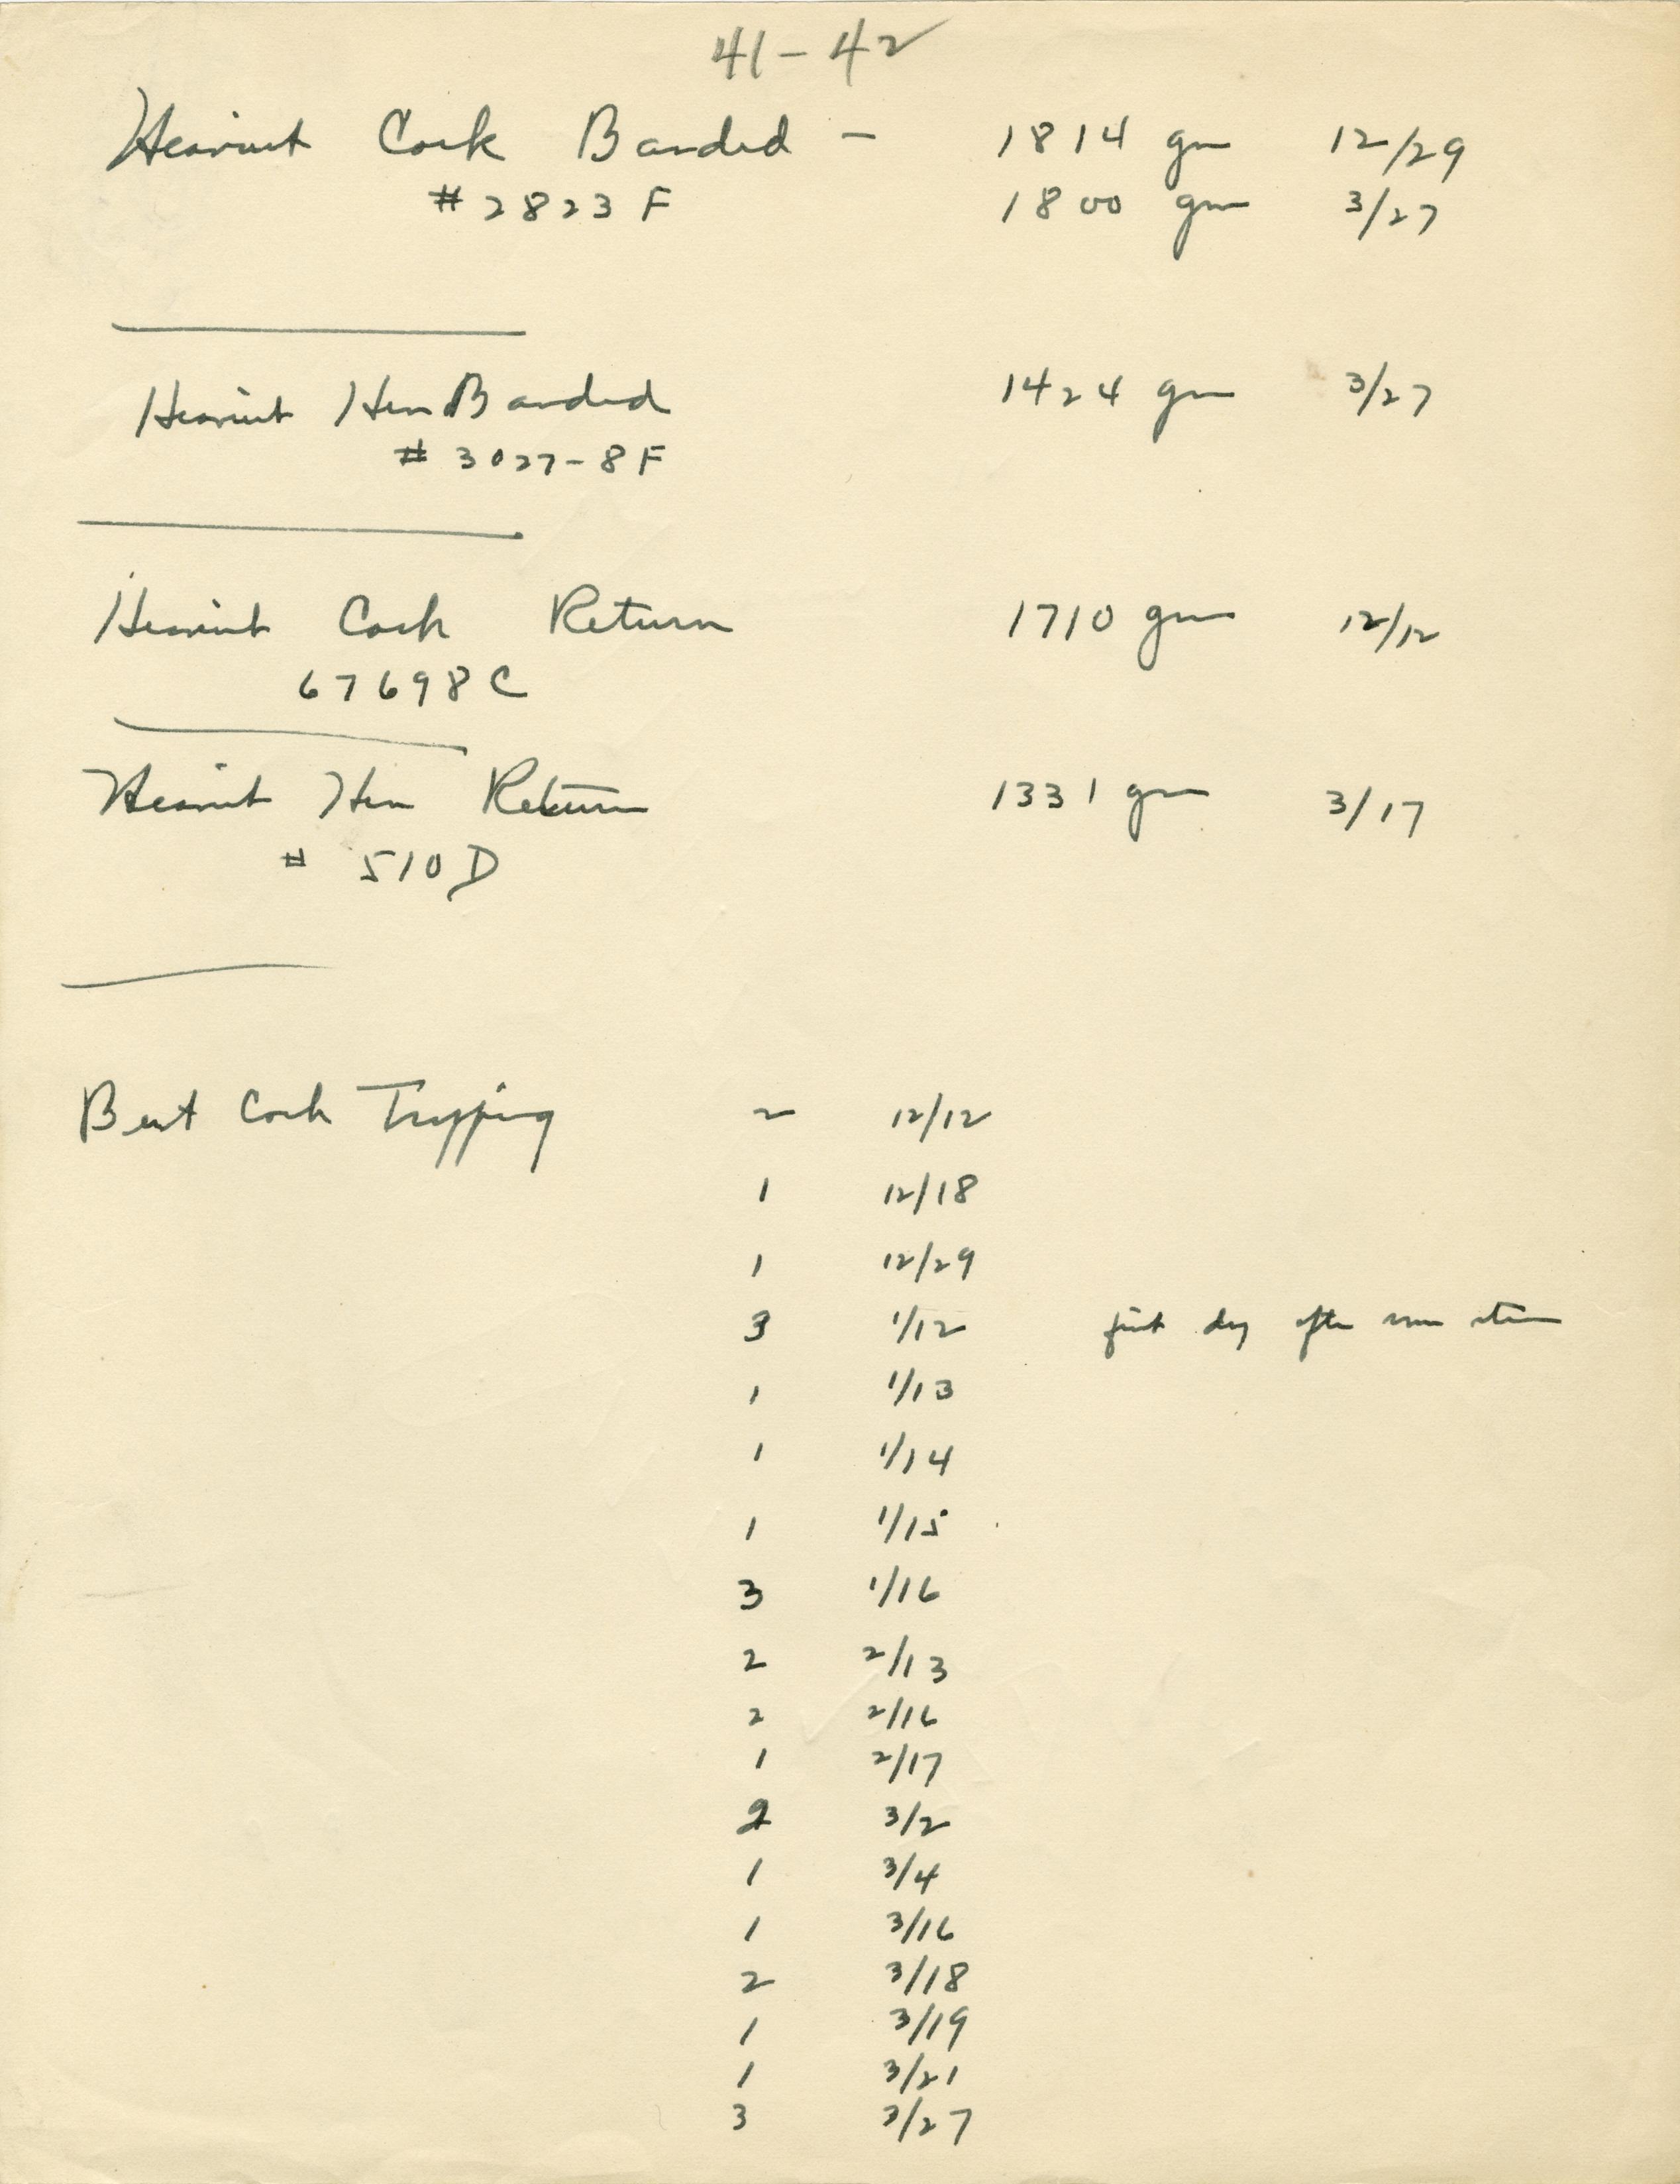 41-42
Heaviest Cock Banded - 1814 gm 12/29
#2823F 1800 gm 3/27
Heaviest Hen Banded 1424 gm 3/27
# 3027-8F
Heaviest Cock Return 1710 gm 12/12
67698C
Heaviest Hen Return 1331 gm 3/17
# 510D
Best Cock Trapping 2 12/12
1 12/18
1 12/29
3 1/12 first day after snow storm
1 1/13
1 1/14
1 1/15
3 1/16
2 2/13
2 2/16
1 2/17
2 3/2
1 3/4
1 3/16
2 3/18
1 3/19
1 3/21
3 3/27